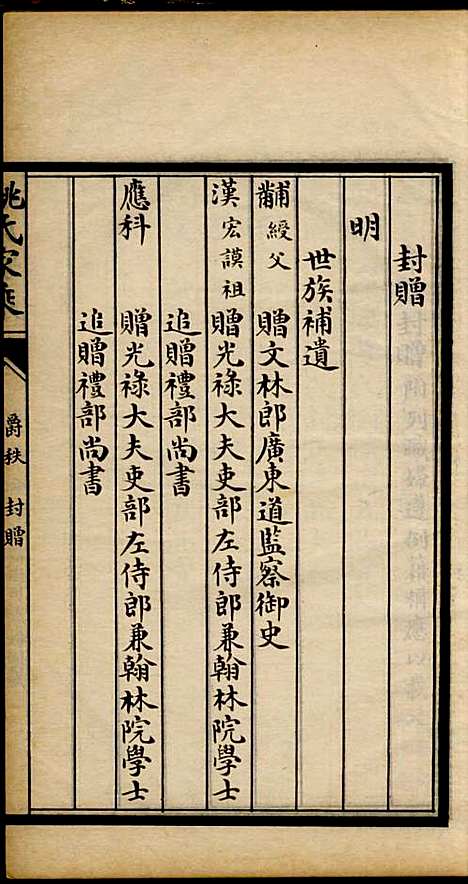 封贈
明
世族補遺
黼 綬父 贈文林郎廣東道監察御史
漢 宏謨祖 贈光祿大夫吏部左侍郎兼翰林院學士
追贈禮部尚書
應科 贈光祿大夫吏部左侍郎兼翰林院學士
追贈禮部尚書
姚氏家乘 爵秩 封贈